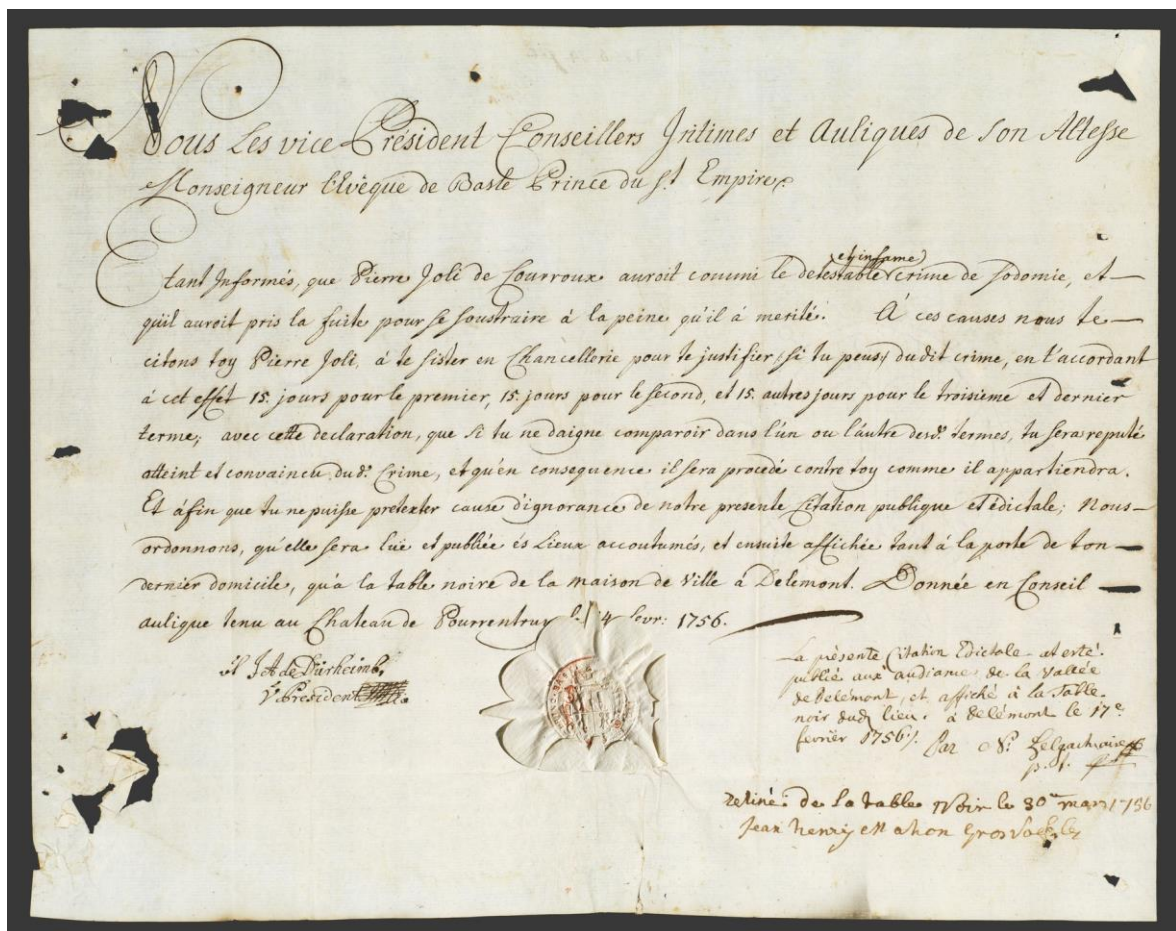 Nous Les vice Président Conseillers Intimes et Auliques de Son Altesse
Monseigneur l'Evêque de Basle Prince du St. Empire
Etant Informés, que Pierre Joli de Courroux auroit commi le detestable et infame crime de Sodomie, et
qu'il auroit pris la fuite pour se soustraire à la peine qu'il à merité. À ces causes nous te
citons toy Pierre Joli, à te sister en Chancellerie pour te justifier, si tu peus, dudit crime, en t'accordant
à cet effét 15. jours pour le premier, 15. jours pour le second, et 15. autres jours pour le troisieme et dernier
terme; avec cette declaration, que si tu ne daigne comparoir dans l'un ou l'autre desd. termes, tu sera reputé
atteint et convaincu dud. Crime, et qu'en consequence il sera procedé contre toy comme il appartiendra.
Et àfin que tu ne puisse pretexter cause d'ignorance de notre presente Citation publique et édictale; Nous
ordonnons, qu'elle sera lüe et publiée és Lieux accoutumés, et ensuite affichée tant à la porte de ton
dernier domicile, qu'a la table noire de la maison de Ville à Delémont. Donnée en Conseil
aulique tenu au Chateau de Pourrentruy 4 fevr: 1756.
J A de Dürheimb,
V. President
La présente Citation Edictale at esté
publié aux audiance de la Vallée
de Delémont, et affiché à la Table
noir dud. lieu. à Delémont le 17e
fevrier 1756
Par
p. t.
Retiré de La table Noir le 30 mars 1756
Jean henry